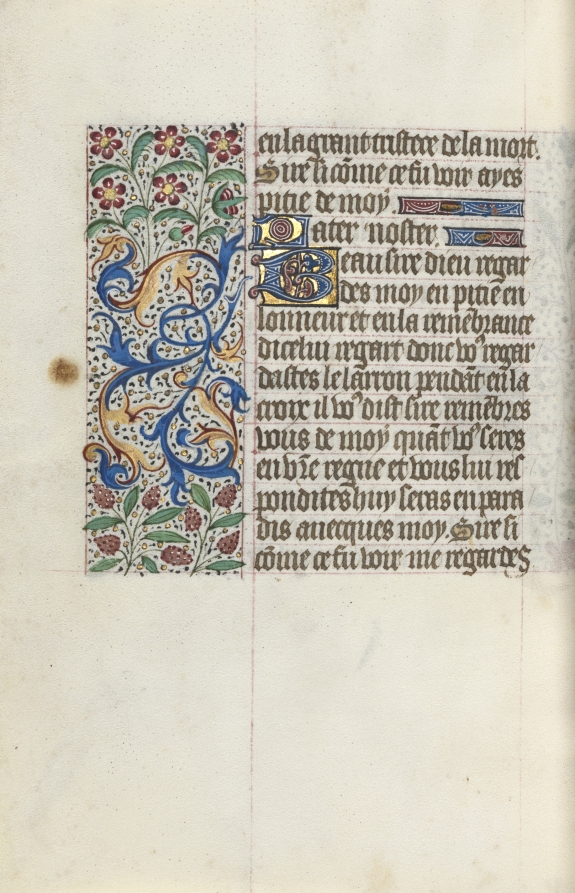 en la grant tristece de la mort.
Sire si cõme ce fu voir ayes
pitie de moy
Pater noster.
Beau sire dieu regar
des moy en pitie en
lonneur et en la remẽbrance
dicelui regart dont voꝰ regar
dastes le larron pendãt en la
croix il voꝰ dist sire remẽbres
vous de moy quãt voꝰ seres
en vr̃e regne et vous lui res
pondites huy seras en para
dis auecques moy. Sire si
cõme ce fu voir me regardes